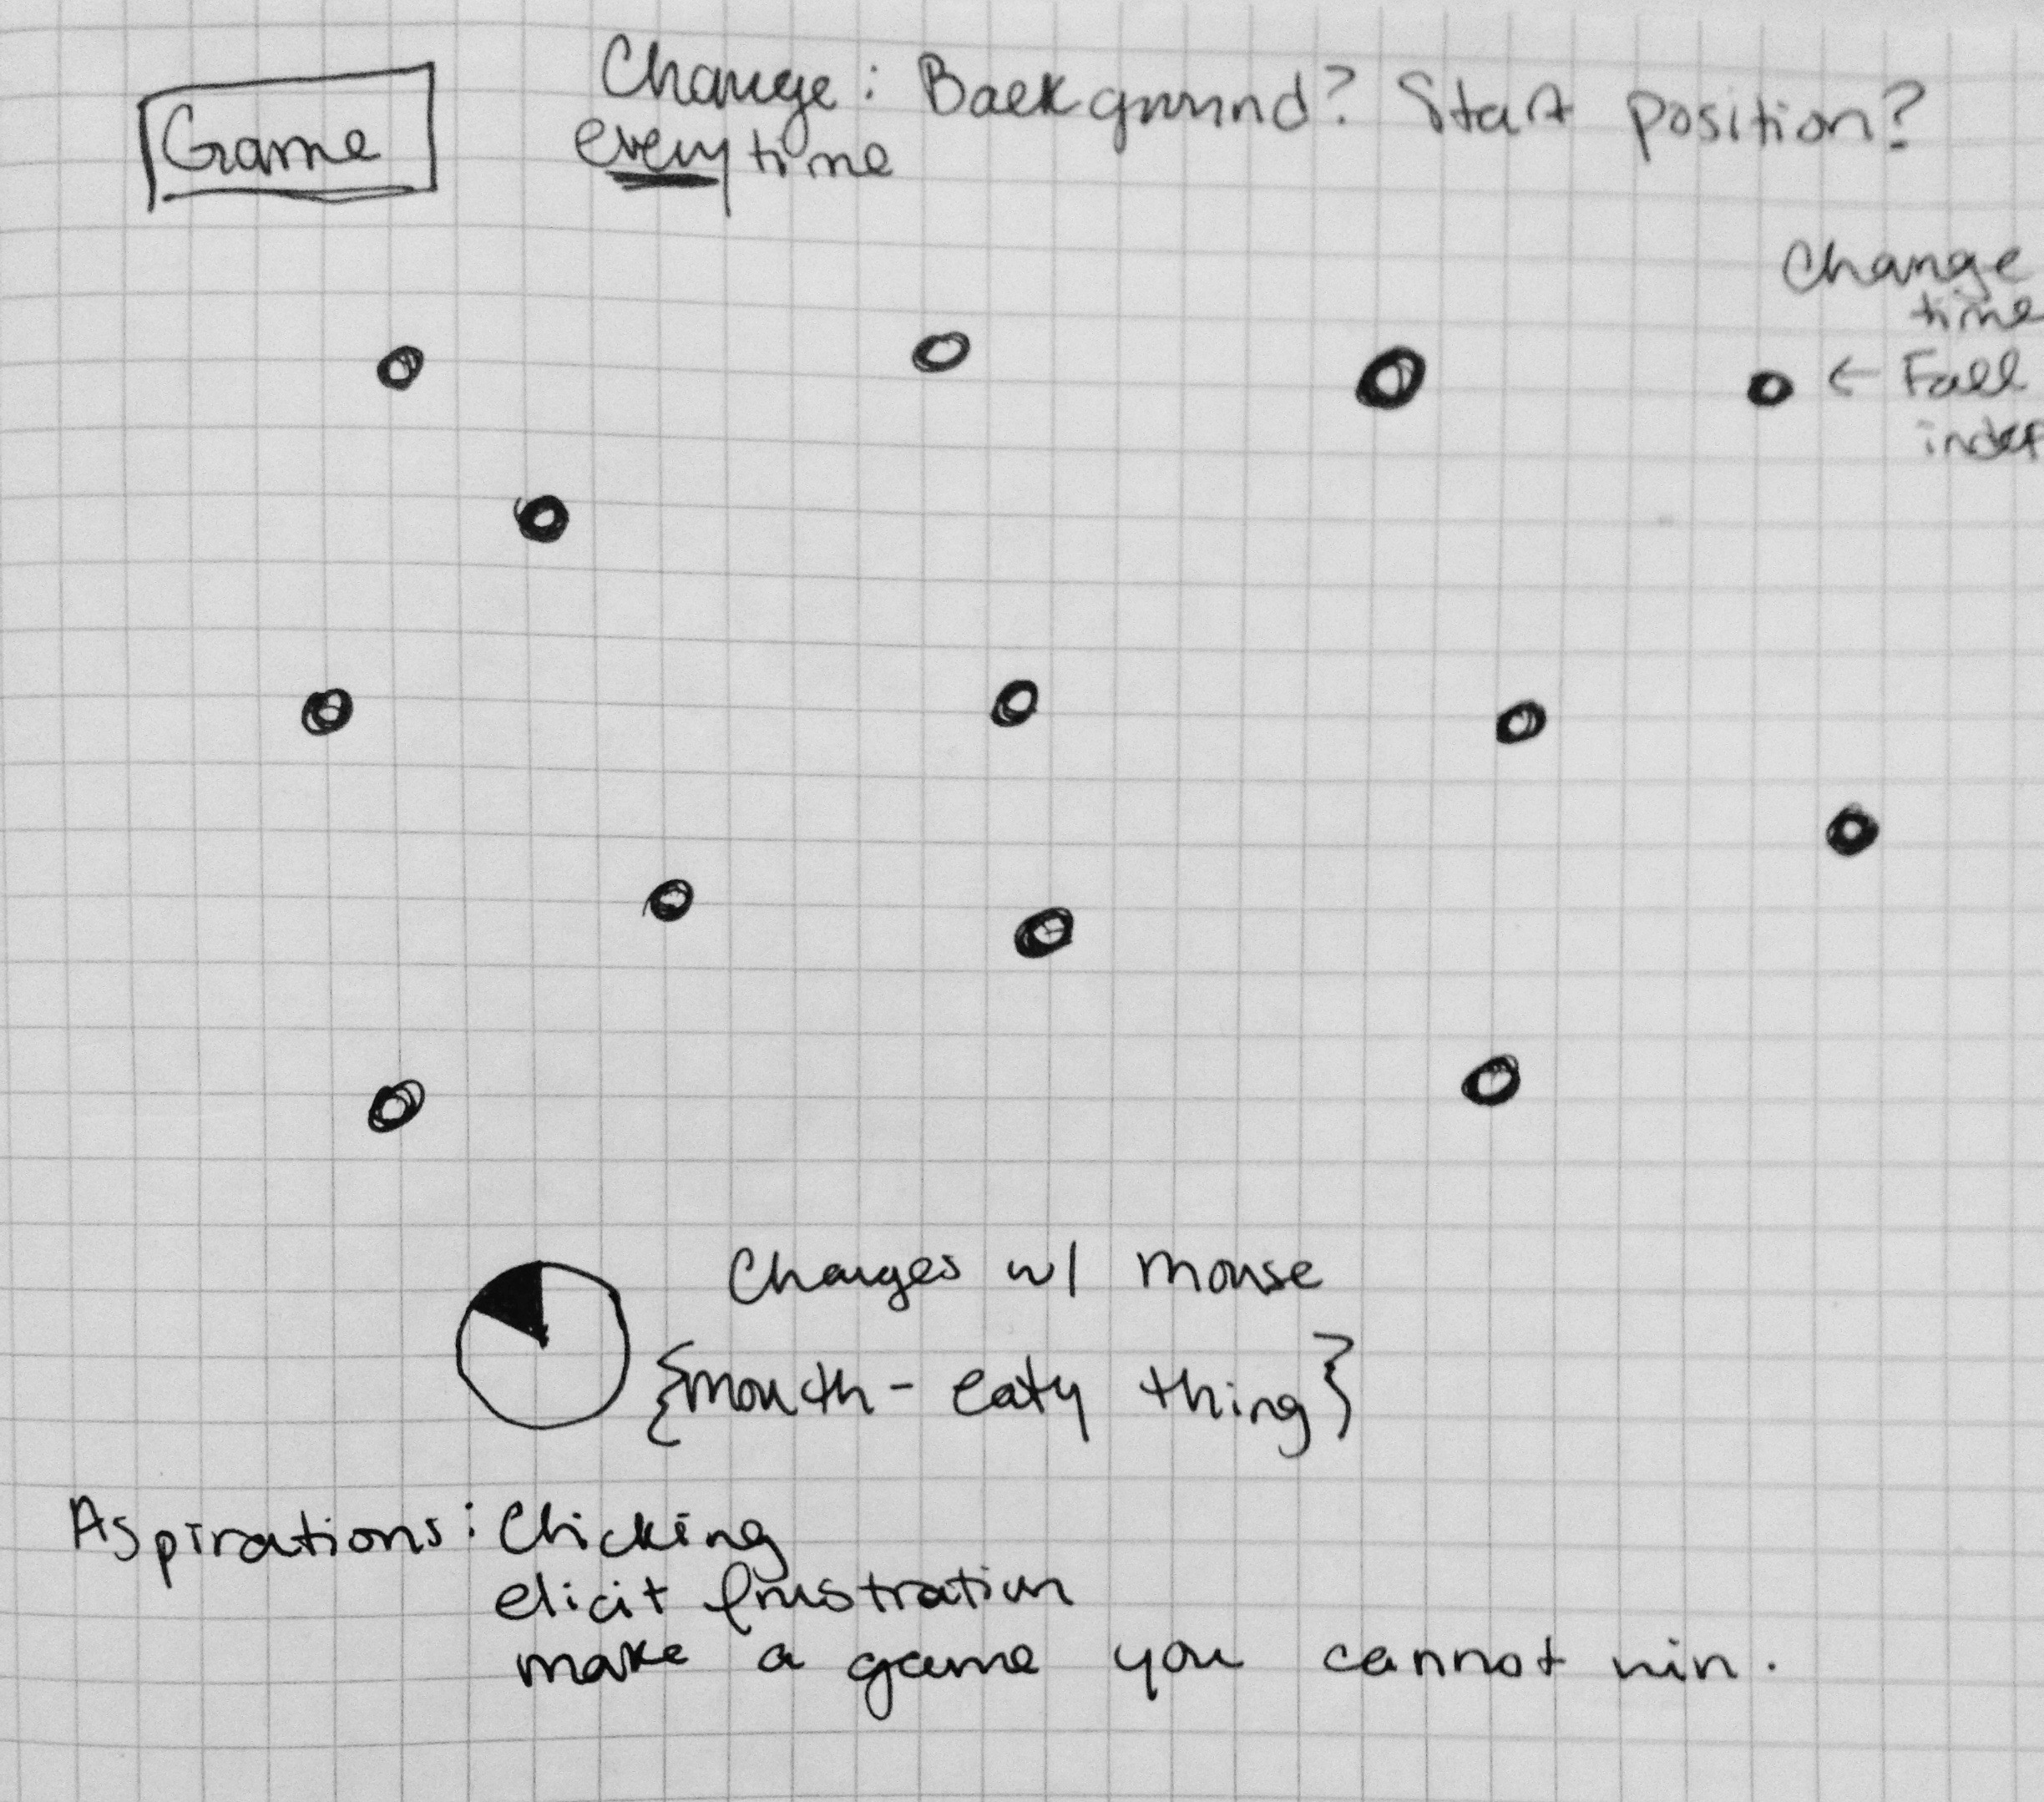 Game
Change: Background? Start position?
every time
Change
time
← Fall
indef
Changes w/ mouse
{mouth-eaty thing}
Aspirations: Clicking
elicit frustration
make a game you cannot win.